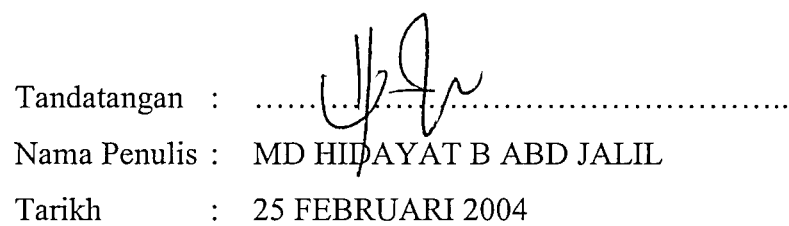 Tandatangan : ........................................................
Nama Penulis : MD HIDAYAT B ABD JALIL
Tarikh : 25 FEBRUARI 2004